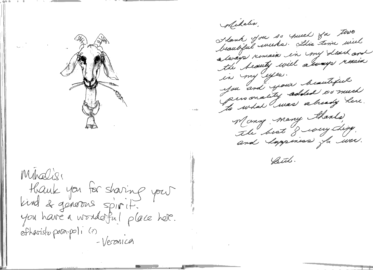 Mihalis:
thank you for sharing your
kind & generous spirit.
you have a wonderful place here.
efharisto para poli
- Veronica
Mihalis,
Thank you so much for two
beautiful weeks. This time will
always remain in my heart and
the beauty will always remain
in my eyes.
you and your beautiful
personality added so much
to what was already here
Many many thanks
the best of everything
and happiness for ever.